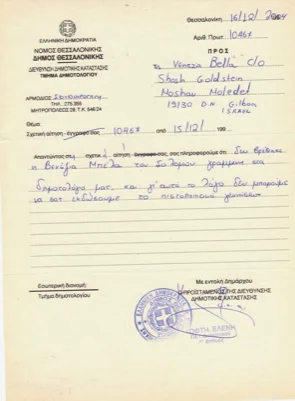 Θεσσαλονίκη, 16/12/2004
ΕΛΛΗΝΙΚΗ ΔΗΜΟΚΡΑΤΙΑ
ΝΟΜΟΣ ΘΕΣΣΑΛΟΝΙΚΗΣ
ΔΗΜΟΣ ΘΕΣΣΑΛΟΝΙΚΗΣ
ΔΙΕΥΘΥΝΣΗ ΔΗΜΟΤΙΚΗΣ ΚΑΤΑΣΤΑΣΗΣ
ΤΜΗΜΑ ΔΗΜΟΤΟΛΟΓΙΟΥ
Αριθ. Πρωτ. 10467
ΠΡΟΣ
Venezia Bella c/o
Shosh Goldstein
Moshav Moledet
19130 D.N. Gilboa
ISRAEL
ΑΡΜΟΔΙΟΣ
ΤΗΛ.: 275.355
ΜΗΤΡΟΠΟΛΕΩΣ 28, Τ.Κ. 546 24
Θέμα
Σχετική αίτηση - έγγραφό σας 10467 από 15/12/ 199
Απαντώντας στη σχετική αίτηση - έγγραφό σας, σας πληροφορούμε ότι δεν βρέθηκε
η Βενέζια Μπέλα του Σολομών γραμμένη στα
δημοτολόγια μας και γι' αυτό το λόγο δεν μπορούμε
να σας εκδώσουμε το πιστοποιητικό γεννήσεων
Εσωτερική διανομή:
Τμήμα δημοτολογίου
Με εντολή Δημάρχου
ΠΡΟΪΣΤΑΜΕΝΗ ΤΗΣ ΔΙΕΥΘΥΝΣΗΣ
ΔΗΜΟΤΙΚΗΣ ΚΑΤΑΣΤΑΣΗΣ
ΕΛΕΝΗ